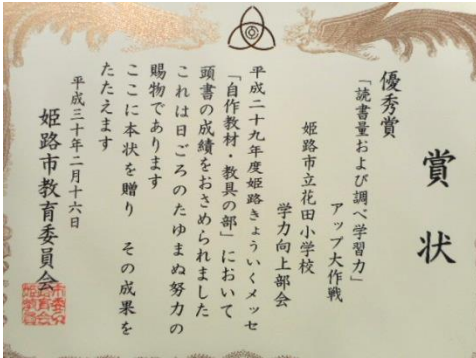 賞状
優秀賞
「読書量および調べ学習力」
アップ大作戦
姫路市立花田小学校
学力向上部会
平成二十九年度姫路きょういくメッセ
「自作教材・教具の部」において
頭書の成績をおさめられました
これは日ごろのたゆまぬ努力の
賜物であります
ここに本状を贈り その成果を
たたえます
平成三十年二月十六日
姫路市教育委員会